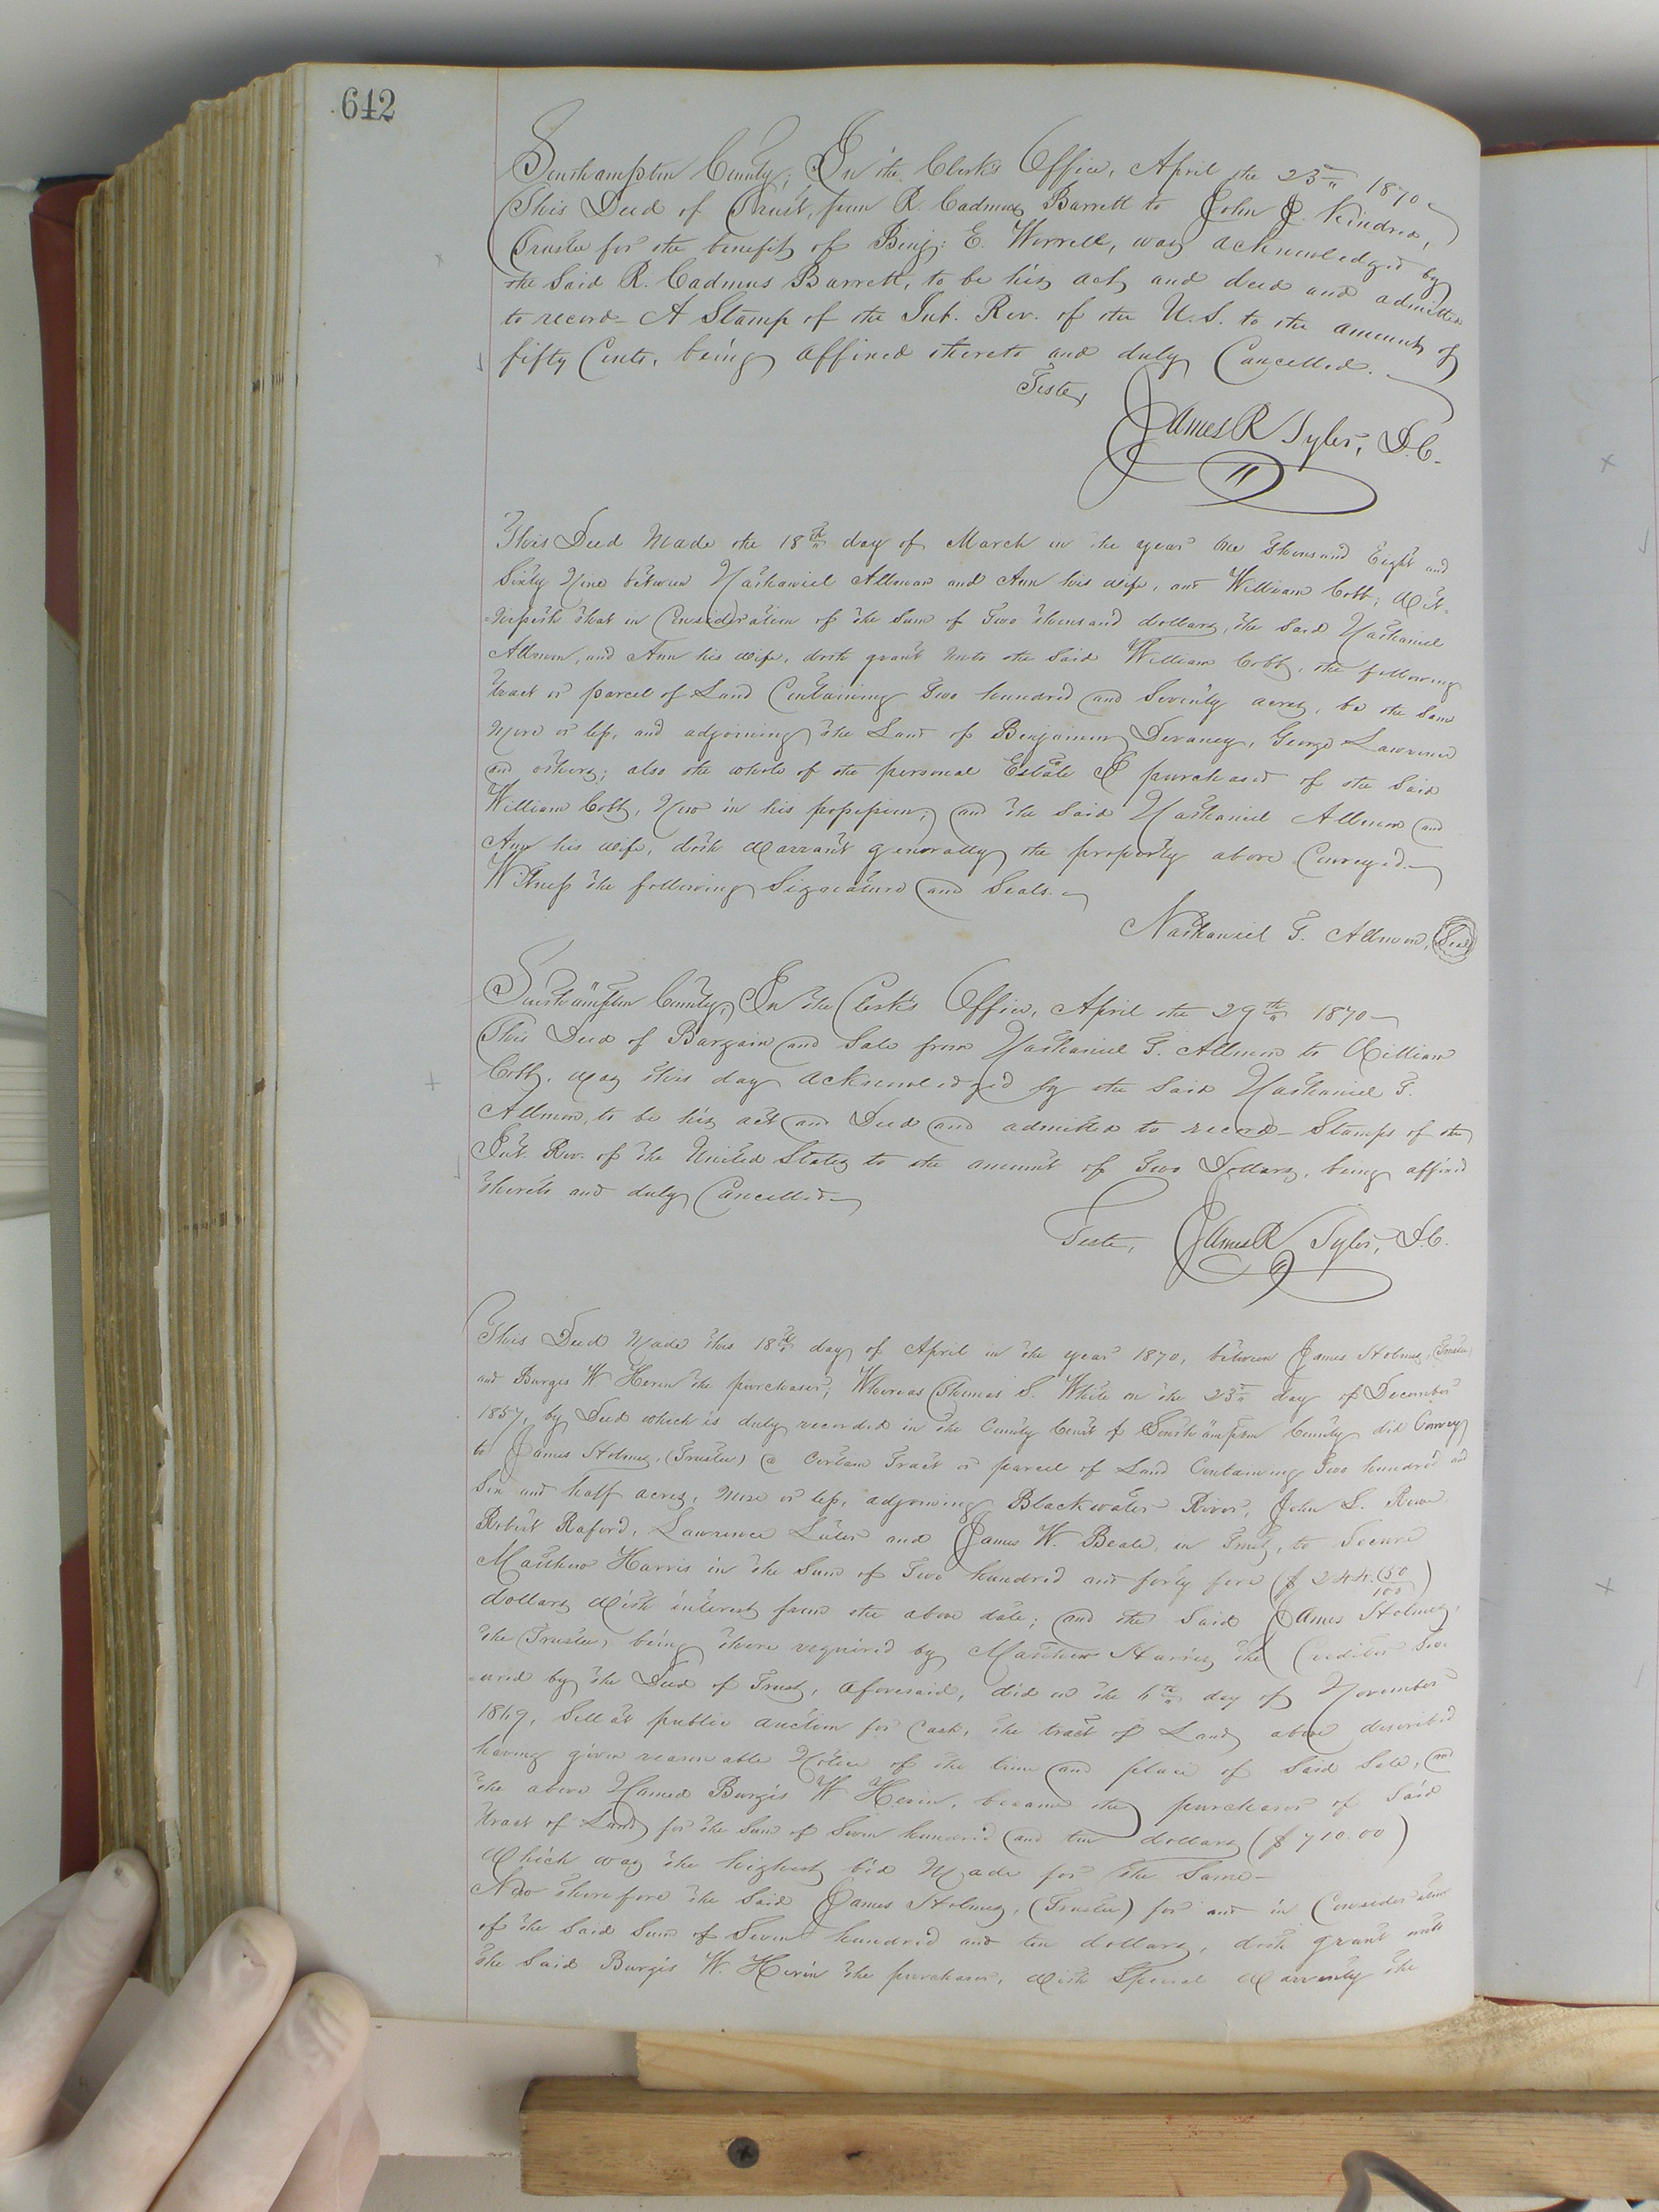 642
Southampton County; In the Clerk's Office, April the 23rd 1870
This Deed of Trust, from R. Cadmus Barrett to John J. Kindred,
Trustee for the benefit of Benj: E. Worrell, was acknowledged by
the Said R. Cadmus Barrett, to be his act and deed and admitted
to record – A Stamp of the Int. Rev. of the U. S. to the amount of
fifty Cents, being affixed thereto and duly Cancelled.
Teste,
James R Tyler, D.C.
This Deed Made the 18th day of March in the year One Thousand Eight and
Sixty Nine between Nathaniel Allmon and Ann his wife, and William Cobb; Wit-
nesseth that in Consideration of the Sum of Two thousand dollars, the Said Nathaniel
Allmon, and Ann his wife, doth grant unto the Said William Cobb, the following
tract or parcel of Land Containing Two hundred and Seventy acres, be the Same
More or less, and adjoining the Land of Benjamin Devaney, George Lawrence
and others; also the whole of the personal Estate I purchased of the Said
William Cobb, Now in his possession; and the Said Nathaniel Allmon and
Ann his wife, doth Warrant generally the property above Conveyed.
Witness the following Signature and Seals.
Nathaniel T. Allmon, Seal
Southampton County, In the Clerk's Office, April the 29th 1870
This Deed of Bargain and Sale from Nathaniel T. Allmon to William
Cobb, was this day acknowledged by the Said Nathaniel T.
Allmon, to be his act and Deed and admitted to record – Stamps of the
Int. Rev. of the United States to the amount of Two Dollars, being affixed
thereto and duly Cancelled
Teste, James R Tyler, D.C.
This Deed Made this 18th day of April in the year 1870, between James Holmes, (Trustee)
and Burges W. Herin the purchaser; Whereas Thomas S. White on the 23rd day of December
1857, by Deed which is duly recorded in the County Court of Southampton County did Convey
to James Holmes, (Trustee) a Certain Tract or parcel of Land Containing Two hundred and
Six and half acres, More or less, adjoining Blackwater River, John S. Rowe
Robert Raford, Lawrence Luter and James W. Beale, in Trust, to Secure
Matthew Harris in the Sum of Two hundred and forty four ($ 244.50/100)
dollars With interest from the above date; and the Said James Holmes,
the Trustee, being there required by Matthew Harris the Creditor Sec-
ured by the Deed of Trust, aforesaid, did on the 6th day of November
1869, Sell at public auction for Cash, the tract of Land above described
having given reasonable Notice of the time and place of Said Sale, and
the above Named Burgis W Herin, became the purchaser of Said
tract of Land for the Sum of Seven hundred and ten dollars ($ 710.00)
Which was the highest bid Made for the Same –
Now therefore the Said James Holmes, (Trustee) for and in Consideration
of the Said Sum of Seven hundred and ten dollars, doth grant unto
the Said Burgis W. Herin the purchaser, With Special Warrenty the